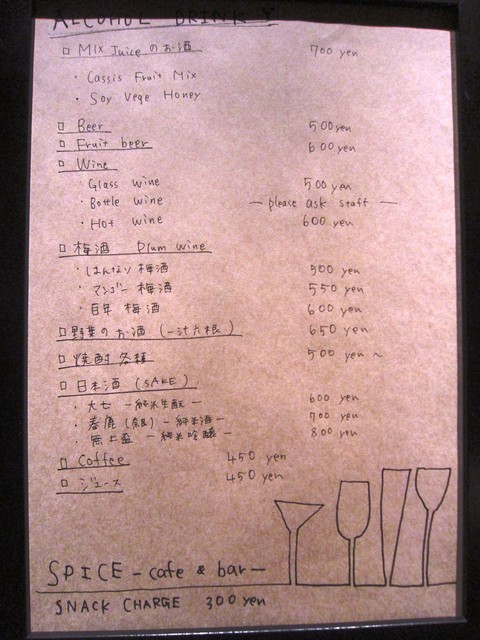 ALCOHOL DRINKS
□ Mix Juice のお酒 700 yen
・Cassis Fruit Mix
・Soy Vege Honey
□ Beer 500 yen
□ Fruit beer 600 yen
□ Wine
・Glass wine 500 yen
・Bottle wine — please ask staff —
・Hot wine 600 yen
□ 梅酒 Plum wine
・はんなり梅酒 500 yen
・マンゴー梅酒 550 yen
・百年梅酒 600 yen
□ 野菜のお酒 (一汁六根) 650 yen
□ 焼酎各種 500 yen ~
□ 日本酒 (SAKE)
・大七 −純米生酛− 600 yen
・春鹿 (奈良) −純米酒− 700 yen
・ −純米吟醸− 800 yen
□ Coffee 450 yen
□ ジュース 450 yen
SPICE − cafe & bar −
SNACK CHARGE 300 yen